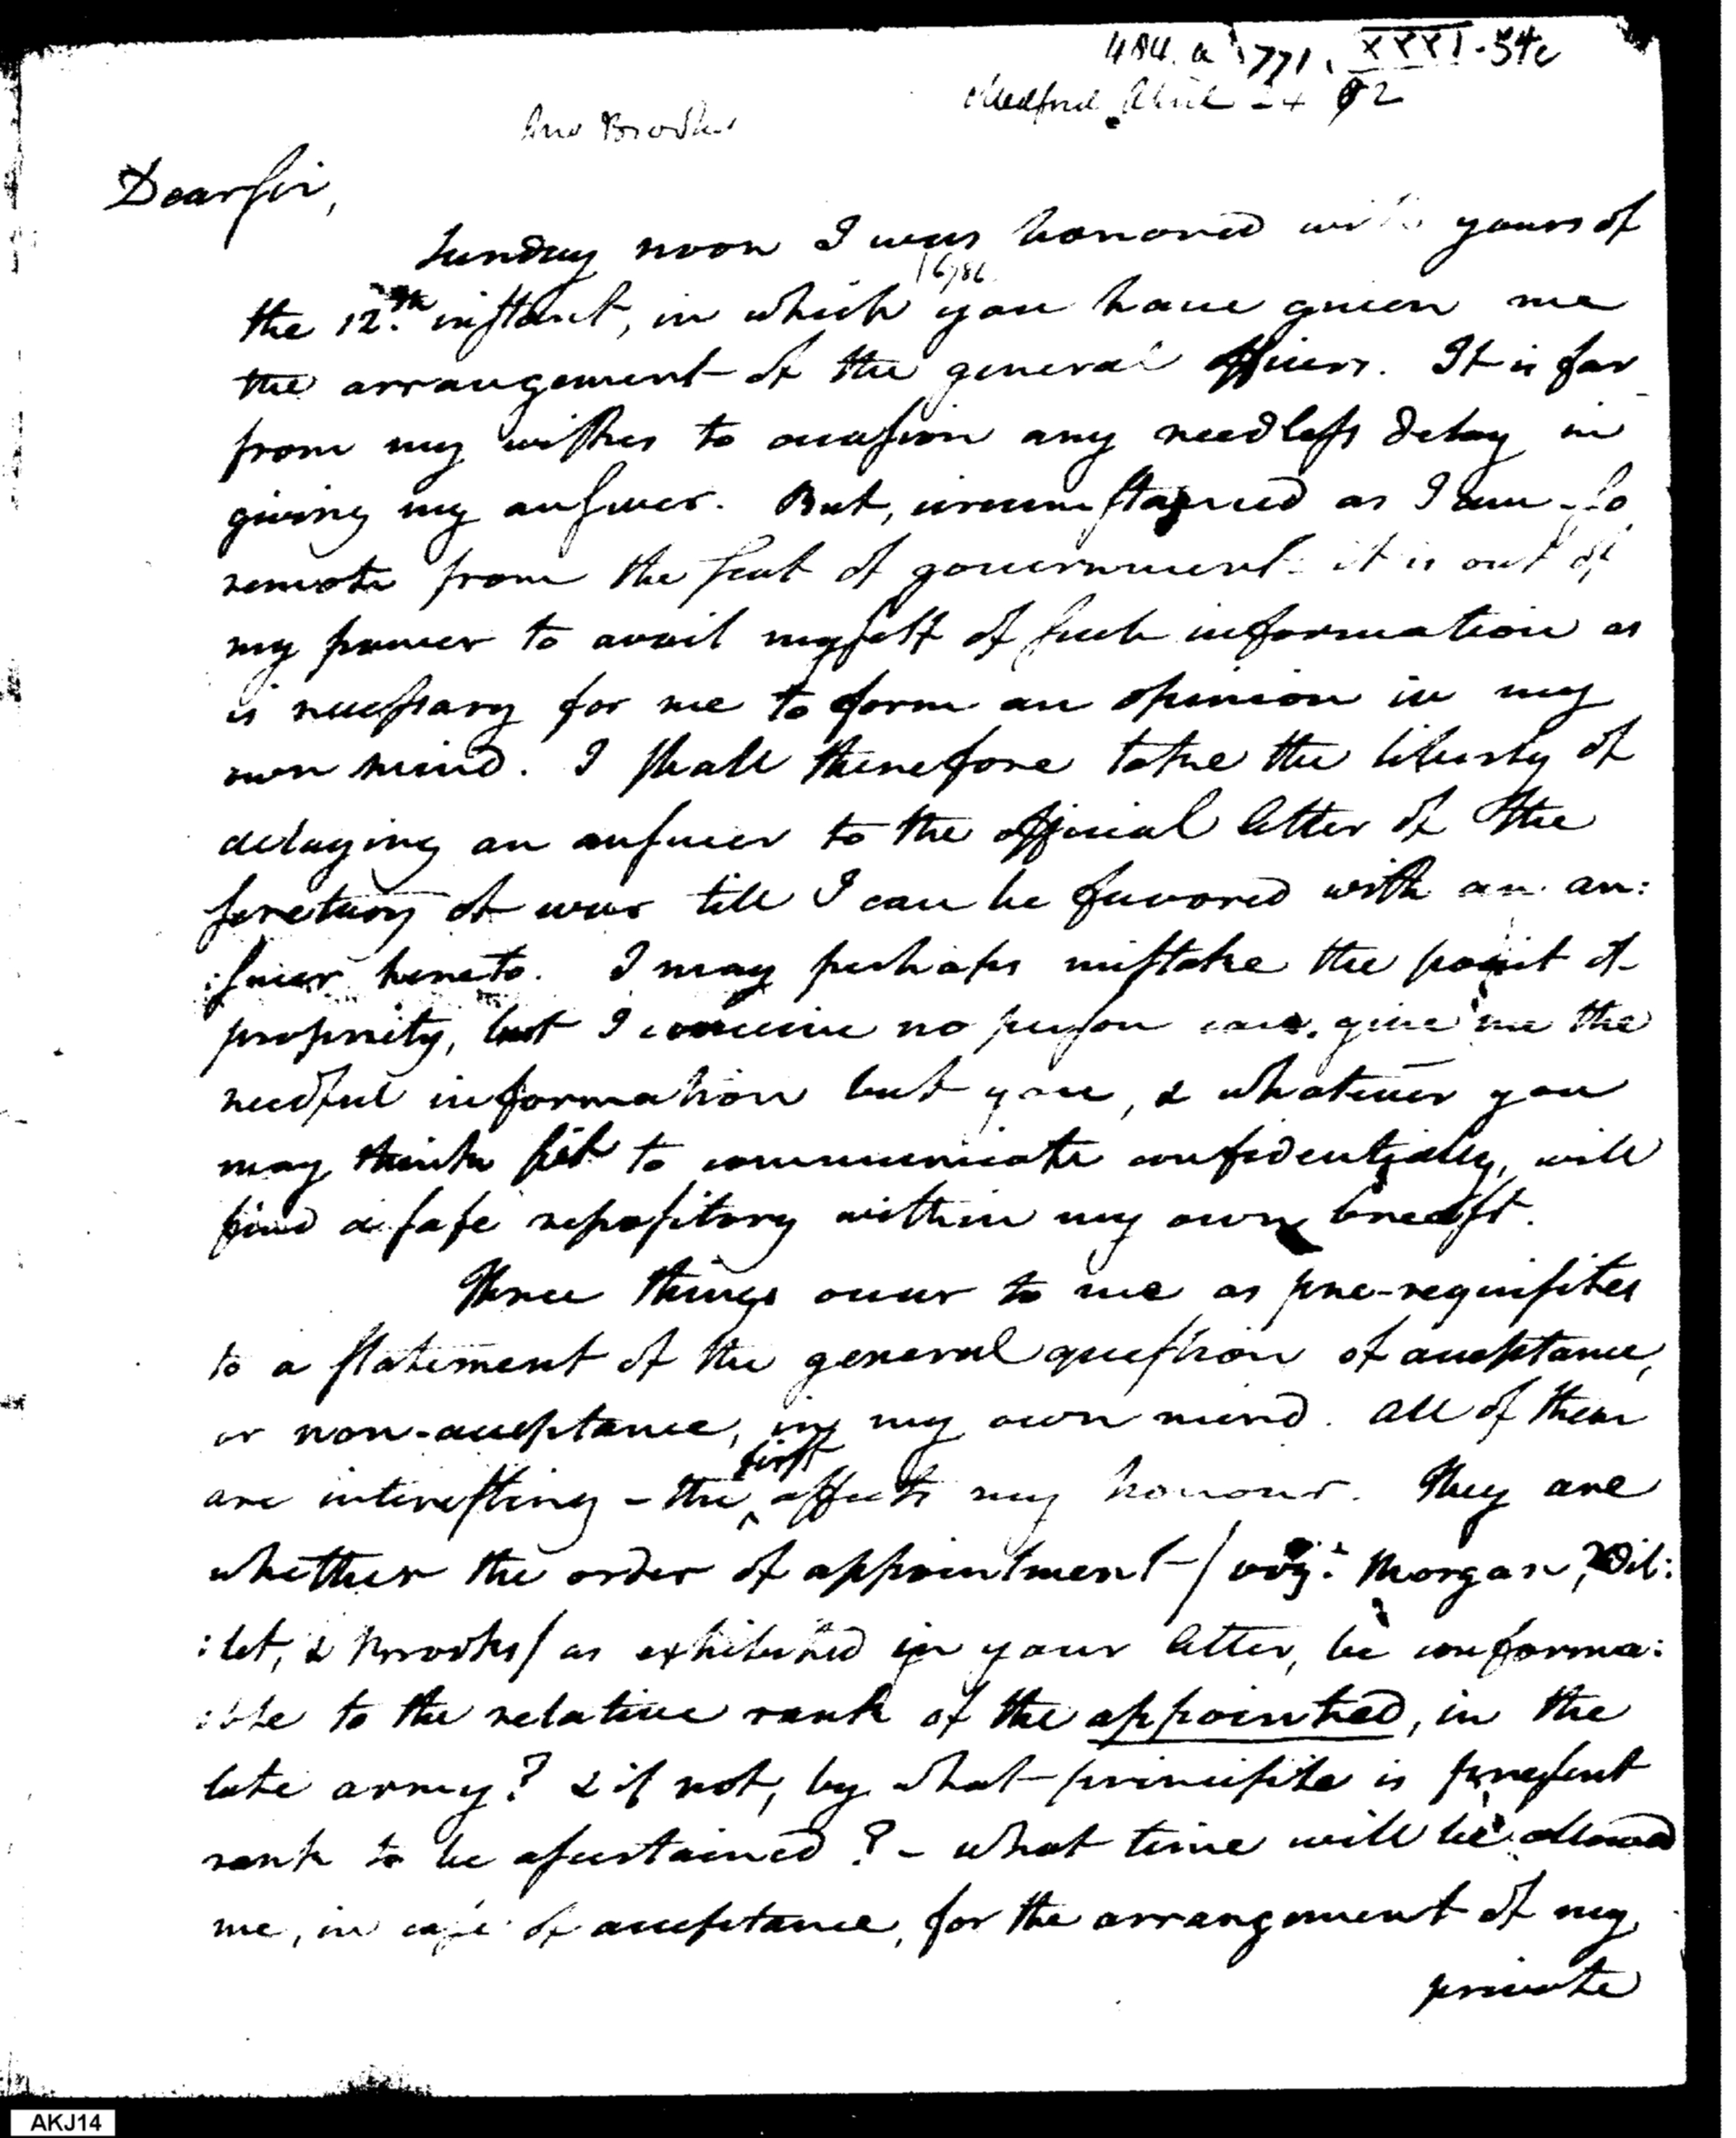 484. a 771, XXXI - 54c
Medford April 24 92
Jno Brooks
Dear Sir,
Sunday noon I was honored with yours of
the 12th. instant, in which you have given me
the arrangement of the general officers. It is far
from my wishes to occasion any needless delay in
giving my answer. But, circumstanced as I am so
remote from the seat of government it is out of
my power to avail myself of such information as
is necessary for me to form an opinion in my
own mind. I shall therefore take the liberty of
delaying an answer to the official letter of the
secretary of war till I can be favored with an an:
:swer hereto. I may perhaps mistake the point of
propriety, but I conceive no person can give me the
needful information but you, & whatever you
may think fit to communicate confidentially, will
find a safe repository within my own breast.
Three things occur to me as pre-requisites
to a statement of the general question of acceptance,
or non-acceptance, in my own mind. All of them
are interesting - the first affects my honour. They are
whether the order of appointment / viz: Morgan, Wil:
:let, & Brooks/ as exhibited in your letter, be conforma:
:ble to the relative rank of the appointed, in the
late army? & if not, by what principle is present
rank to be ascertained? - what time will be allowed
me, in case of acceptance, for the arrangement of my
private
AKJ14